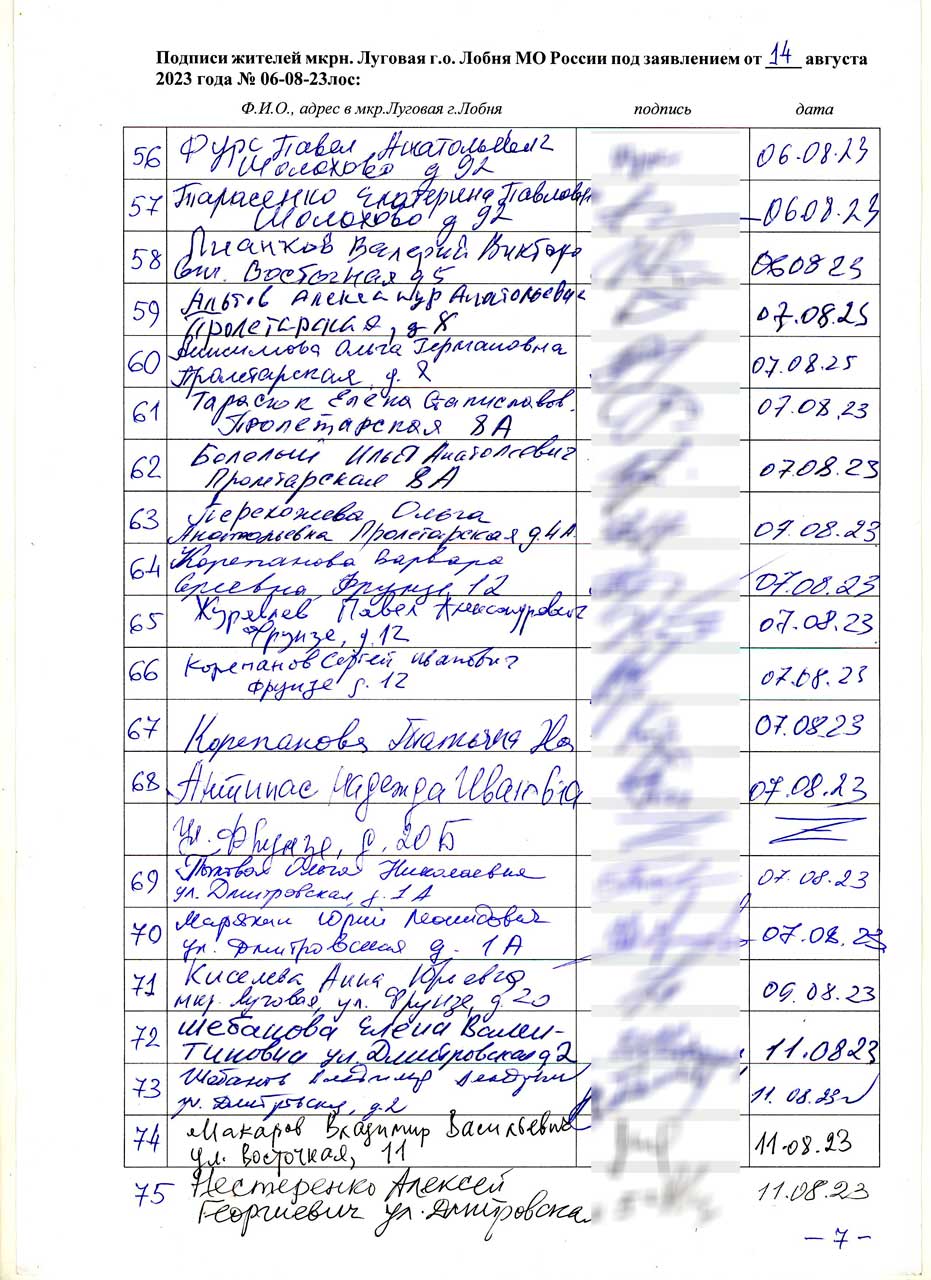 Подписи жителей мкрн. Луговая г.о. Лобня МО России под заявлением от 14 августа
2023 года № 06-08-23лос:
Ф.И.О., адрес в мкр.Луговая г.Лобня подпись дата
56 Фурс Павел Анатольевич 06.08.23
Шолохово д 92
57 Тарасенко Екатерина Павловна 06.08.23
Шолохово д 92
58 Пианков Валерий Виктор 06 08 23
Восточная д 5
59 Альтов Александр Анатольевич 07.08.23
Пролетарская, д 8
60 Анисимова Ольга Германовна 07.08.23
Пролетарская, д. 8
61 Тарасюк Елена Станиславов. 07.08.23
Пролетарская 8А
62 Илья Анатольевич 07.08.23
Пролетарская 8А
63 Перехожева Ольга 07.08.23
Анатольевна Пролетарская д.4А
64 Корепанова Варвара 07.08.23
Фрунзе 12
65 Журавлев Павел Александрович 07.08.23
Фрунзе, д.12
66 Корепанов Сергей Иванович 07.08.23
Фрунзе д. 12
67 Корепанова Татьяна 07.08.23
68 Антипас Надежда Ивановна 07.08.23
ул. Фрунзе, д. 20Б
69 Ольга Николаевна 07.08.23
ул. Дмитровская, д. 1А
70 Юрий Леонидович 07.08.23
ул. Дмитровская д. 1А
71 Киселева Анна Юрьевна 09.08.23
мкр. Луговая, ул. Фрунзе, д. 20
72 Шебанова Елена Вален- 11.08 23
тиновна ул. Дмитровская д 2
73 Шебанов Владимир 11.08.23
ул. Дмитровская, д.2
74 Макаров Владимир Васильевич 11.08.23
ул. Восточная, 11
75 Нестеренко Алексей 11.08.23
Георгиевич ул. Дмитровская
– 7 –